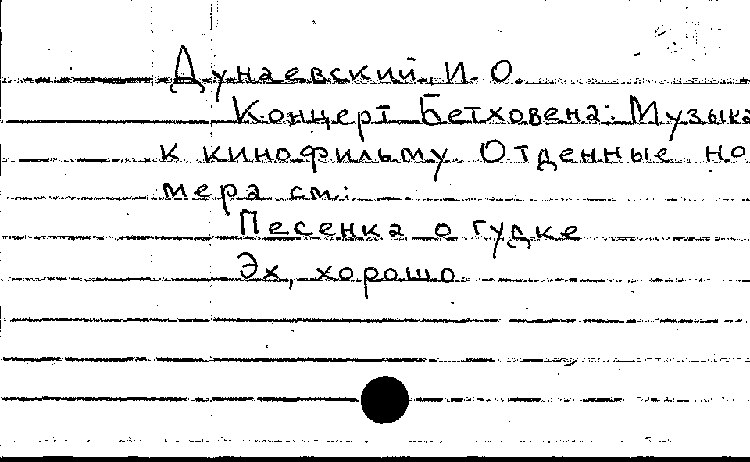 Дунаевский, И. О.
Концерт Бетховена: Музыка
к кинофильму. Отденные но
мера см.:
Песенка о гудке
Эх, хорошо